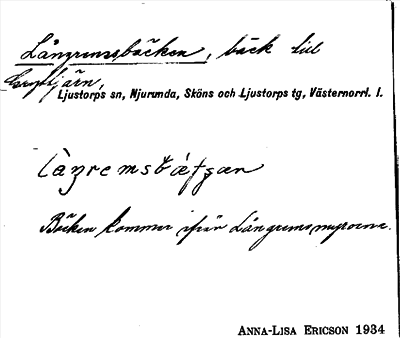 Långremsbäcken, bäck till
tjärn,
Ljustorps sn, Njurunda, Sköns och Ljustorps tg, Västernorrl. l.
Bäcken kommer ifrån Långremsmyrorna.
ANNA-LISA ERICSON 1934